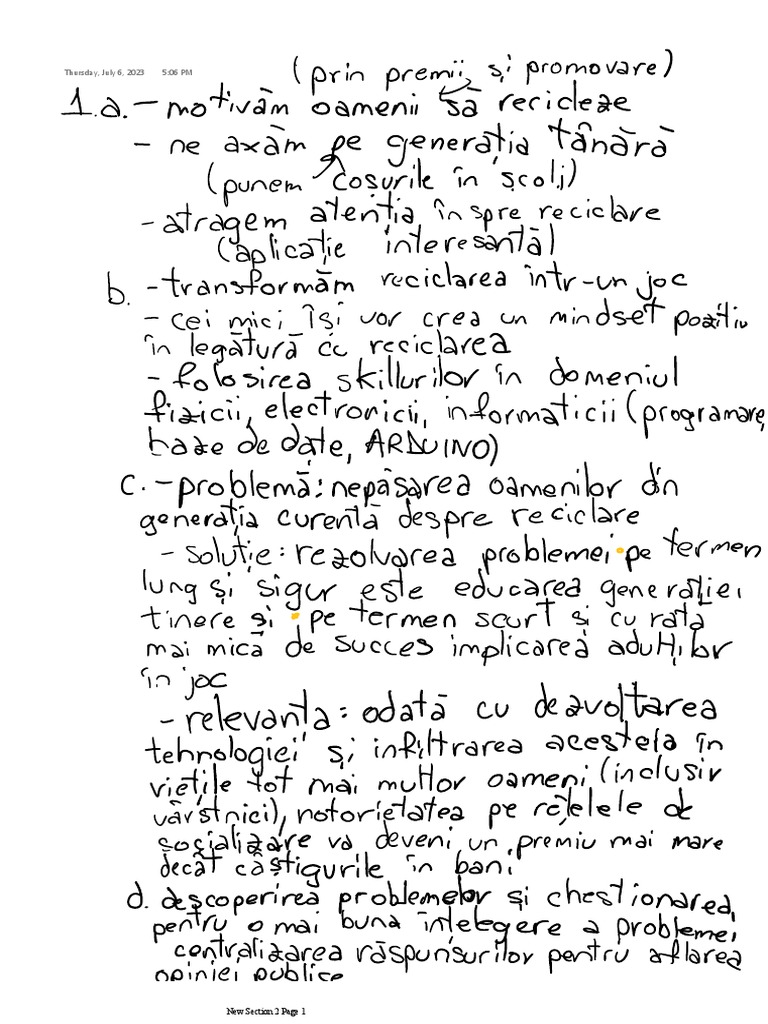 Thursday, July 6, 2023 5:06 PM
(prin premii și promovare)
1.a. - motivăm oamenii să recicleze
- ne axăm pe generația tânără
(punem coșurile în școli)
- atragem atenția înspre reciclare
(aplicație interesantă)
b. - transformăm reciclarea într-un joc
- cei mici își vor crea un mindset pozitiv
în legătură cu reciclarea
- folosirea skillurilor în domeniul
fizicii, electronicii, informaticii (programare,
baze de date, ARDUINO)
c. - problemă: nepăsarea oamenilor din
generația curentă despre reciclare
- soluție: rezolvarea problemei pe termen
lung și sigur este educarea generației
tinere și pe termen scurt și cu rată
mai mică de succes implicarea adulților
în joc
- relevanta: odată cu dezvoltarea
tehnologiei și infiltrarea acesteia în
viețile tot mai multor oameni (inclusiv
vârstnici), notorietatea pe rețelele de
socializare va deveni un premiu mai mare
decât câștigurile în bani
d. descoperirea problemelor și chestionarea
pentru o mai buna înțelegere a problemei
centralizarea răspunsurilor pentru aflarea
opiniei publice
New Section 2 Page 1